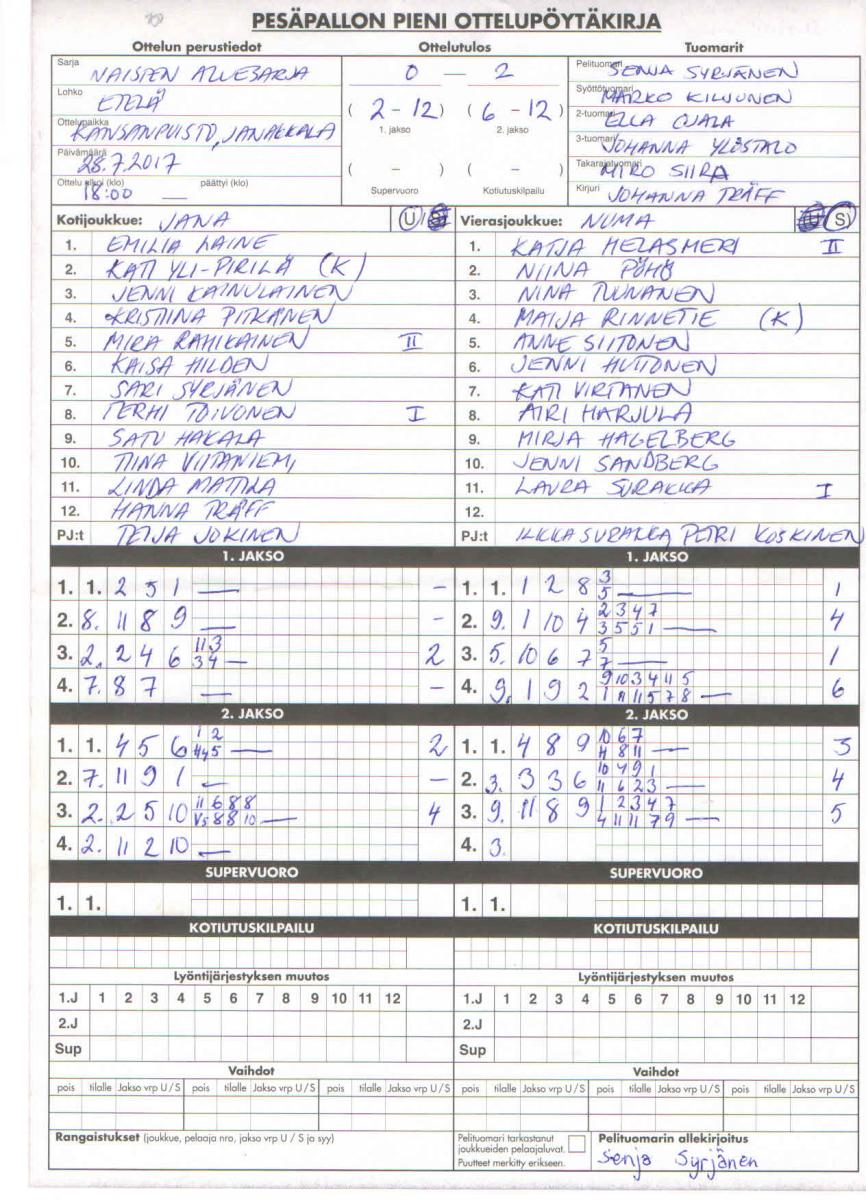 PESÄPALLON PIENI OTTELUPÖYTÄKIRJA
Ottelun perustiedot Ottelutulos Tuomarit
Sarja NAISTEN ALUESARJA
Lohko ETELÄ
Ottelupaikka KANSANPUISTO, JANAKKALA
Päivämäärä 28.7.2017
Ottelu alkoi (klo) 18:00 — päättyi (klo)
0 — 2
( 2 – 12 ) ( 6 – 12 )
1. jakso 2. jakso
( – ) ( – )
Supervuoro Kotiutuskilpailu
Pelituomari SENJA SYRJÄNEN
Syöttötuomari MARKO KILJUNEN
2-tuomari ELLA OJALA
3-tuomari JOHANNA YLÖSTALO
Takarajatuomari MIRO SIIRA
Kirjuri JOHANNA TRÄFF
Kotijoukkue: JANA U/S
1. EMILIA LAINE
2. KATI YLI-PIRILÄ (K)
3. JENNI KAINULAINEN
4. KRISTIINA PITKÄNEN
5. MIRA RAHIKAINEN II
6. KAISA HILDEN
7. SARI SYRJÄNEN
8. TERHI TOIVONEN I
9. SATU HAKALA
10. TIINA VIITANIEMI
11. LINDA MATTILA
12. HANNA TRÄFF
PJ:t TEIJA JOKINEN
Vierasjoukkue: NUMA U/S
1. KATJA HELASMERI II
2. NIINA PÖHÖ
3. NINA TUUNANEN
4. MAIJA RINNETIE (K)
5. ANNE SIITONEN
6. JENNI HUTTONEN
7. KATI VIRTANEN
8. AIRI HARJULA
9. MIRJA HAGELBERG
10. JENNI SANDBERG
11. LAURA SURAKKA I
12.
PJ:t ILKKA SURAKKA PETRI KOSKINEN
1. JAKSO
1. 1. 2 5 1 — –
2. 8. 11 8 9 — –
3. 2. 2 4 6 11 3 3 4 — 2
4. 7. 8 7 — –
2. JAKSO
1. 1. 4 5 6 1 2 — 2
2. 7. 11 9 1 — –
3. 2. 2 5 10 11 6 8 8 8 8 10 — 4
4. 2. 11 2 10 —
SUPERVUORO
1. 1.
KOTIUTUSKILPAILU
1. JAKSO
1. 1. 1 2 8 3 5 — 1
2. 9. 1 10 4 2 3 4 7 3 5 5 1 — 4
3. 5. 10 6 7 5 7 — 1
4. 9. 1 9 2 9 10 3 4 11 5 1 11 11 5 7 8 — 6
2. JAKSO
1. 1. 4 8 9 10 6 7 8 11 — 3
2. 3. 3 3 6 10 4 9 1 11 6 2 3 — 4
3. 9. 11 8 9 1 2 3 4 7 4 11 11 7 9 — 5
4. 3.
SUPERVUORO
1. 1.
KOTIUTUSKILPAILU
Lyöntijärjestyksen muutos
1.J 1 2 3 4 5 6 7 8 9 10 11 12
2.J
Sup
Lyöntijärjestyksen muutos
1.J 1 2 3 4 5 6 7 8 9 10 11 12
2.J
Sup
Vaihdot
pois tilalle Jakso vrp U/S pois tilalle Jakso vrp U/S pois tilalle Jakso vrp U/S
Vaihdot
pois tilalle Jakso vrp U/S pois tilalle Jakso vrp U/S pois tilalle Jakso vrp U/S
Rangaistukset (joukkue, pelaaja nro, jakso vrp U / S ja syy)
Pelituomari tarkastanut
joukkueiden pelaajaluvat.
Puutteet merkitty erikseen.
Pelituomarin allekirjoitus
Senja Syrjänen